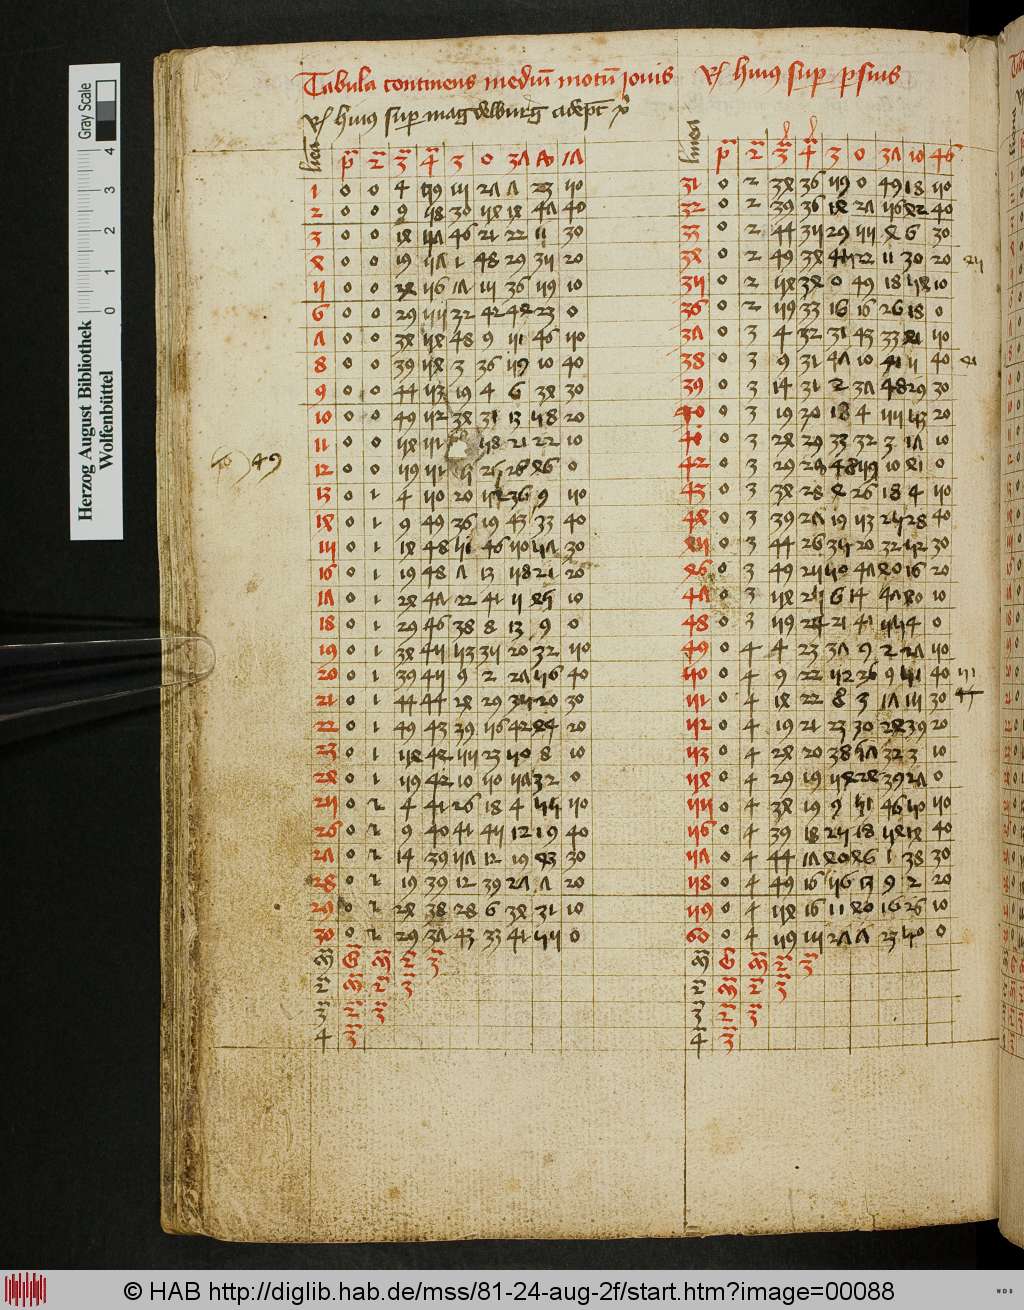 Tabula continens mediu motu iouis
Rx huius sup magdelburg
Rx huius sup psius
linea p 2 3 4 3 0 37 17
linea p 2 3 4 3 0 37 10 46
1 0 0 4 59 15 27 7 23 50
2 0 0 9 58 30 54 14 47 40
3 0 0 14 57 46 21 22 11 30
4 0 0 19 57 1 48 29 35 20
5 0 0 24 56 17 15 36 59 10
6 0 0 29 55 32 42 44 23 0
7 0 0 34 54 48 9 51 46 50
8 0 0 39 54 3 36 59 10 40
9 0 0 44 53 19 4 6 34 30
10 0 0 49 52 34 31 13 58 20
11 0 0 54 51 58 21 22 10
49
12 0 0 59 51 5 25 28 46 0
13 0 1 4 50 20 52 36 9 50
14 0 1 9 49 36 19 43 33 40
15 0 1 14 48 51 46 50 57 30
16 0 1 19 48 7 13 58 21 20
17 0 1 24 47 22 41 5 45 10
18 0 1 29 46 38 8 13 9 0
19 0 1 34 45 53 35 20 32 50
20 0 1 39 45 9 2 27 56 40
21 0 1 44 44 24 29 35 20 30
22 0 1 49 43 39 56 42 44 20
23 0 1 54 42 55 23 50 8 10
24 0 1 59 42 10 50 57 32 0
25 0 2 4 41 26 18 4 55 50
26 0 2 9 40 41 45 12 19 40
27 0 2 14 39 57 12 19 43 30
28 0 2 19 39 12 39 27 7 20
29 0 2 24 38 28 6 34 31 10
30 0 2 29 37 43 33 41 55 0
m G m 2 3
2 m 2 3
3 2 3
4 3
31 0 2 34 36 59 0 49 18 50
32 0 2 39 36 14 27 56 42 40
33 0 2 44 35 29 55 4 6 30
34 0 2 49 34 45 22 11 30 20
35 0 2 54 34 0 49 18 54 10
36 0 2 59 33 16 16 26 18 0
37 0 3 4 32 31 43 33 41 50
38 0 3 9 31 47 10 41 5 40 41
39 0 3 14 31 2 37 48 29 30
40 0 3 19 20 18 4 55 53 20
41 0 3 24 29 33 32 3 17 10
42 0 3 29 28 48 59 10 41 0
43 0 3 34 28 4 26 18 4 50
44 0 3 39 27 19 53 25 28 40
45 0 3 44 26 35 20 32 52 30
46 0 3 49 25 50 47 40 16 20
47 0 3 54 25 6 14 47 40 10
48 0 3 59 24 21 41 55 4 0
49 0 4 4 23 37 9 2 27 50
50 0 4 9 22 52 26 9 51 40 51
51 0 4 14 22 8 3 17 15 30 44
52 0 4 19 21 23 30 24 39 20
53 0 4 24 20 38 57 32 3 10
54 0 4 29 19 54 24 39 27 0
55 0 4 34 19 9 51 46 50 50
56 0 4 39 18 25 18 54 14 40
57 0 4 44 17 40 46 1 38 30
58 0 4 49 16 56 13 9 2 20
59 0 4 54 16 11 40 16 26 10
60 0 4 59 15 27 7 23 50 0
m G m 2 3
2 m 2 3
3 2 3
4 3
Herzog August Bibliothek
Wolfenbüttel
0 1 2 3 4
Gray Scale
© HAB http://diglib.hab.de/mss/81-24-aug-2f/start.htm?image=00088